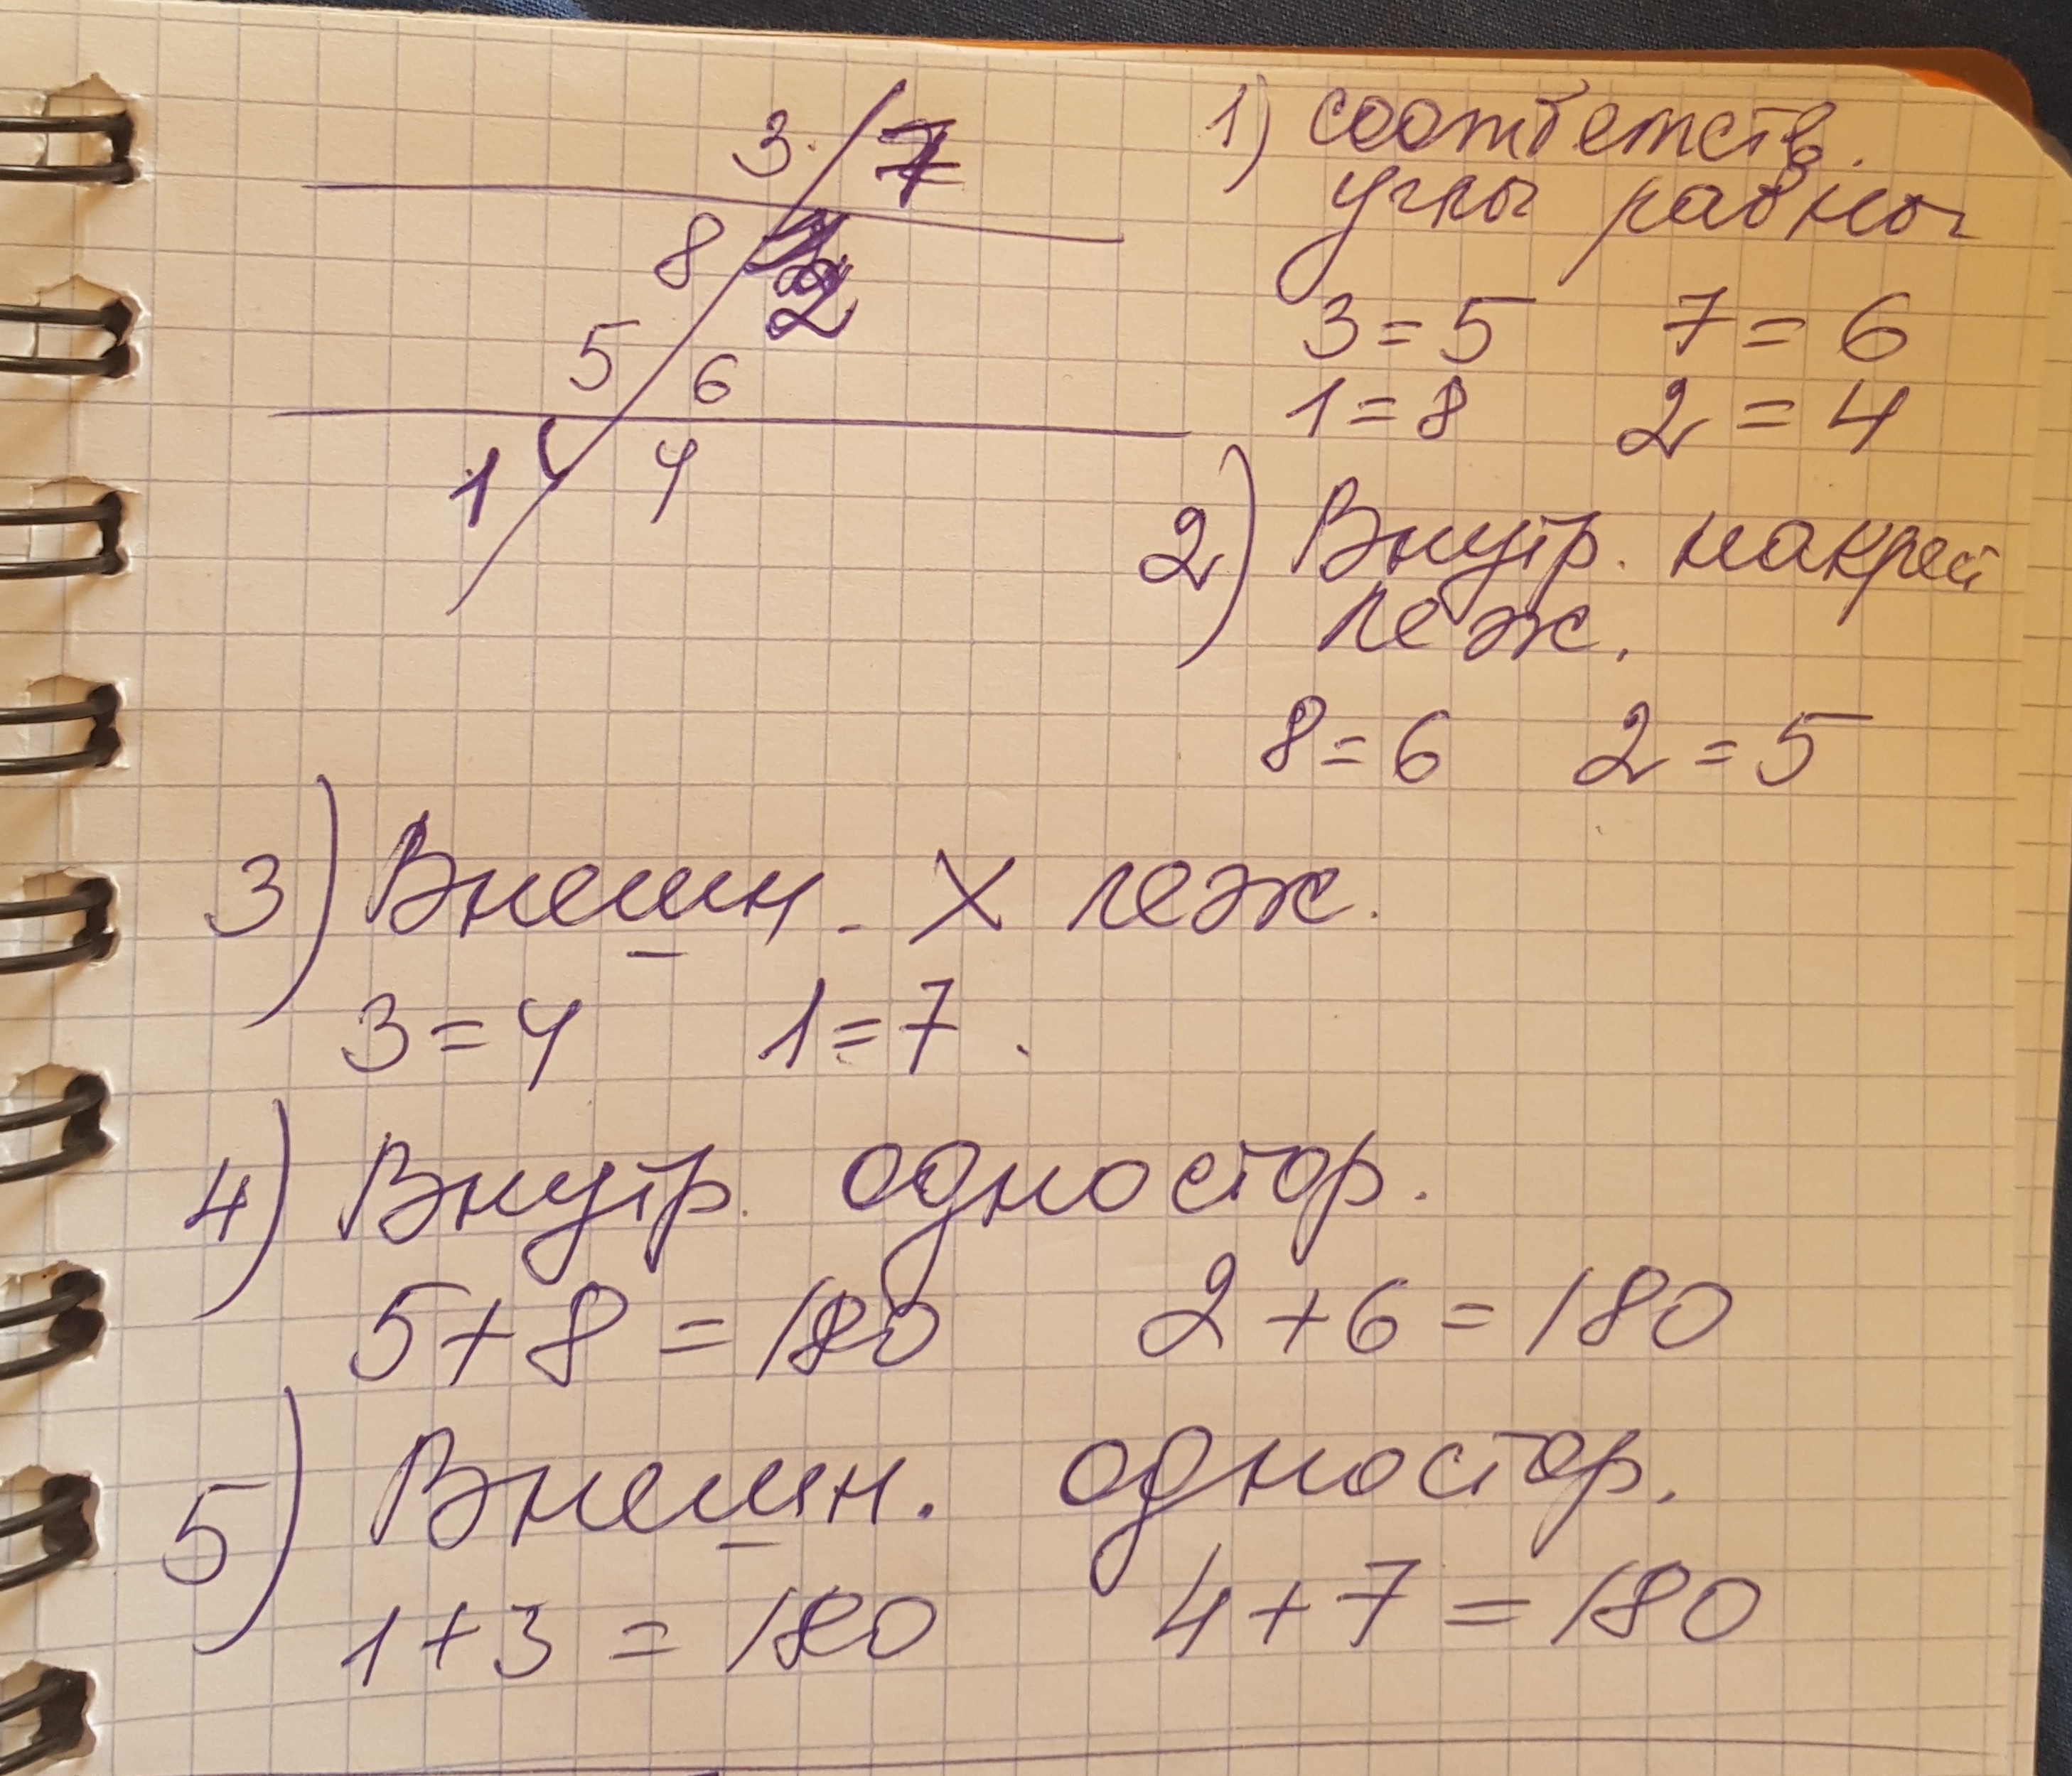 3 7
8 2
5 6
1 4
1) соответств.
углы равны
3 = 5 7 = 6
1 = 8 2 = 4
2) Внутр. накрест
леж.
8 = 6 2 = 5
3) Внешн. X леж.
3 = 4 1 = 7
4) Внутр. одностор.
5 + 8 = 180 2 + 6 = 180
5) Внешн. одностор.
1 + 3 = 180 4 + 7 = 180